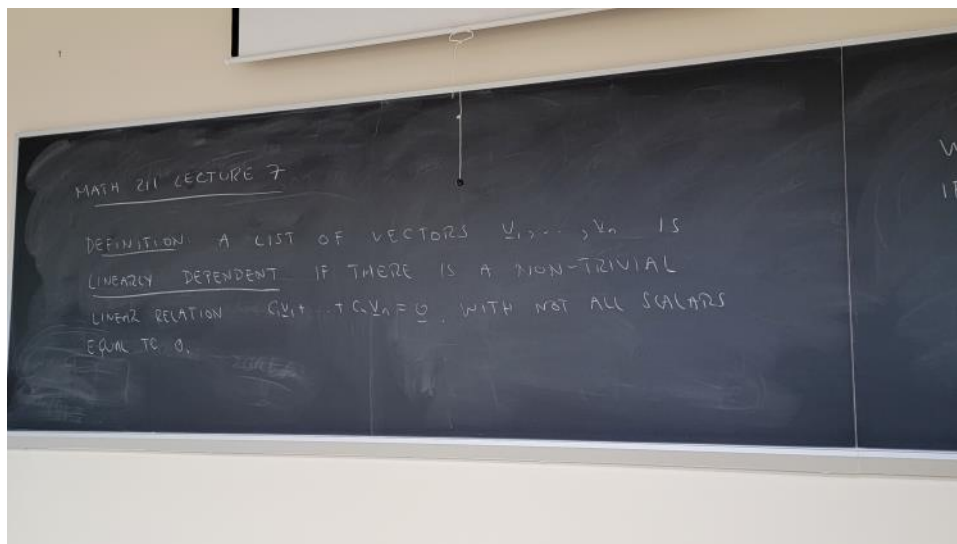 MATH 211 LECTURE 7
DEFINITION: A LIST OF VECTORS v₁, ..., vₙ IS
LINEARLY DEPENDENT IF THERE IS A NON-TRIVIAL
LINEAR RELATION c₁v₁ + ... + cₙvₙ = 0, WITH NOT ALL SCALARS
EQUAL TO 0.